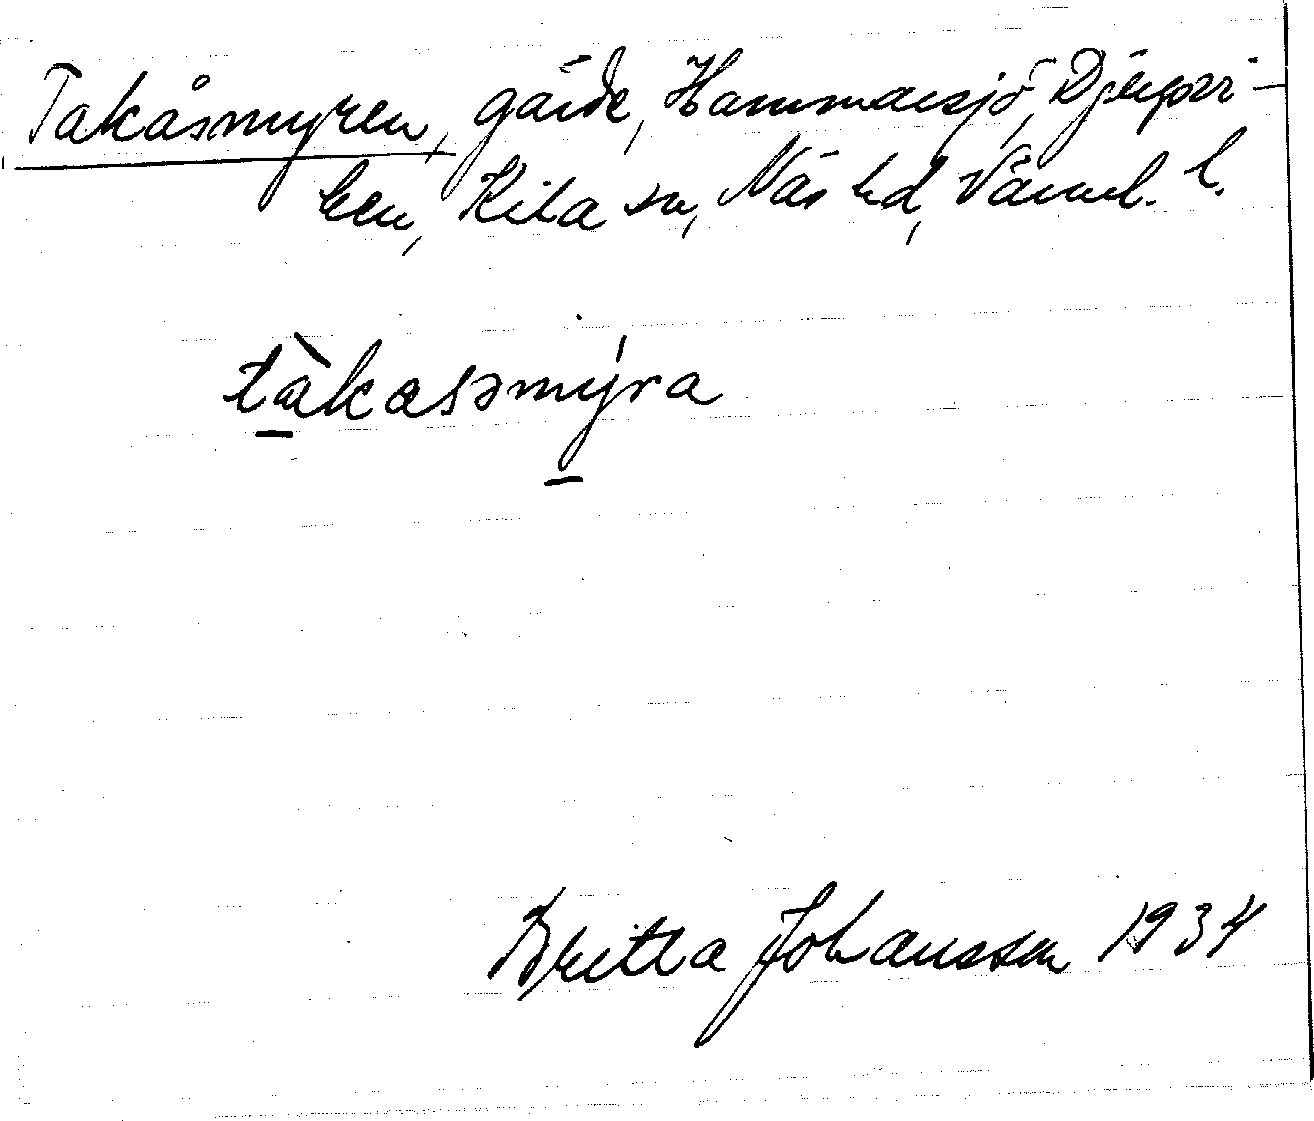 Takåsmyren, gärde, Hammarsjö, Djurpri-
ken, Kila sn, Näs hd, Värml. l.
tàkasəmýra
Britta Johansson 1934